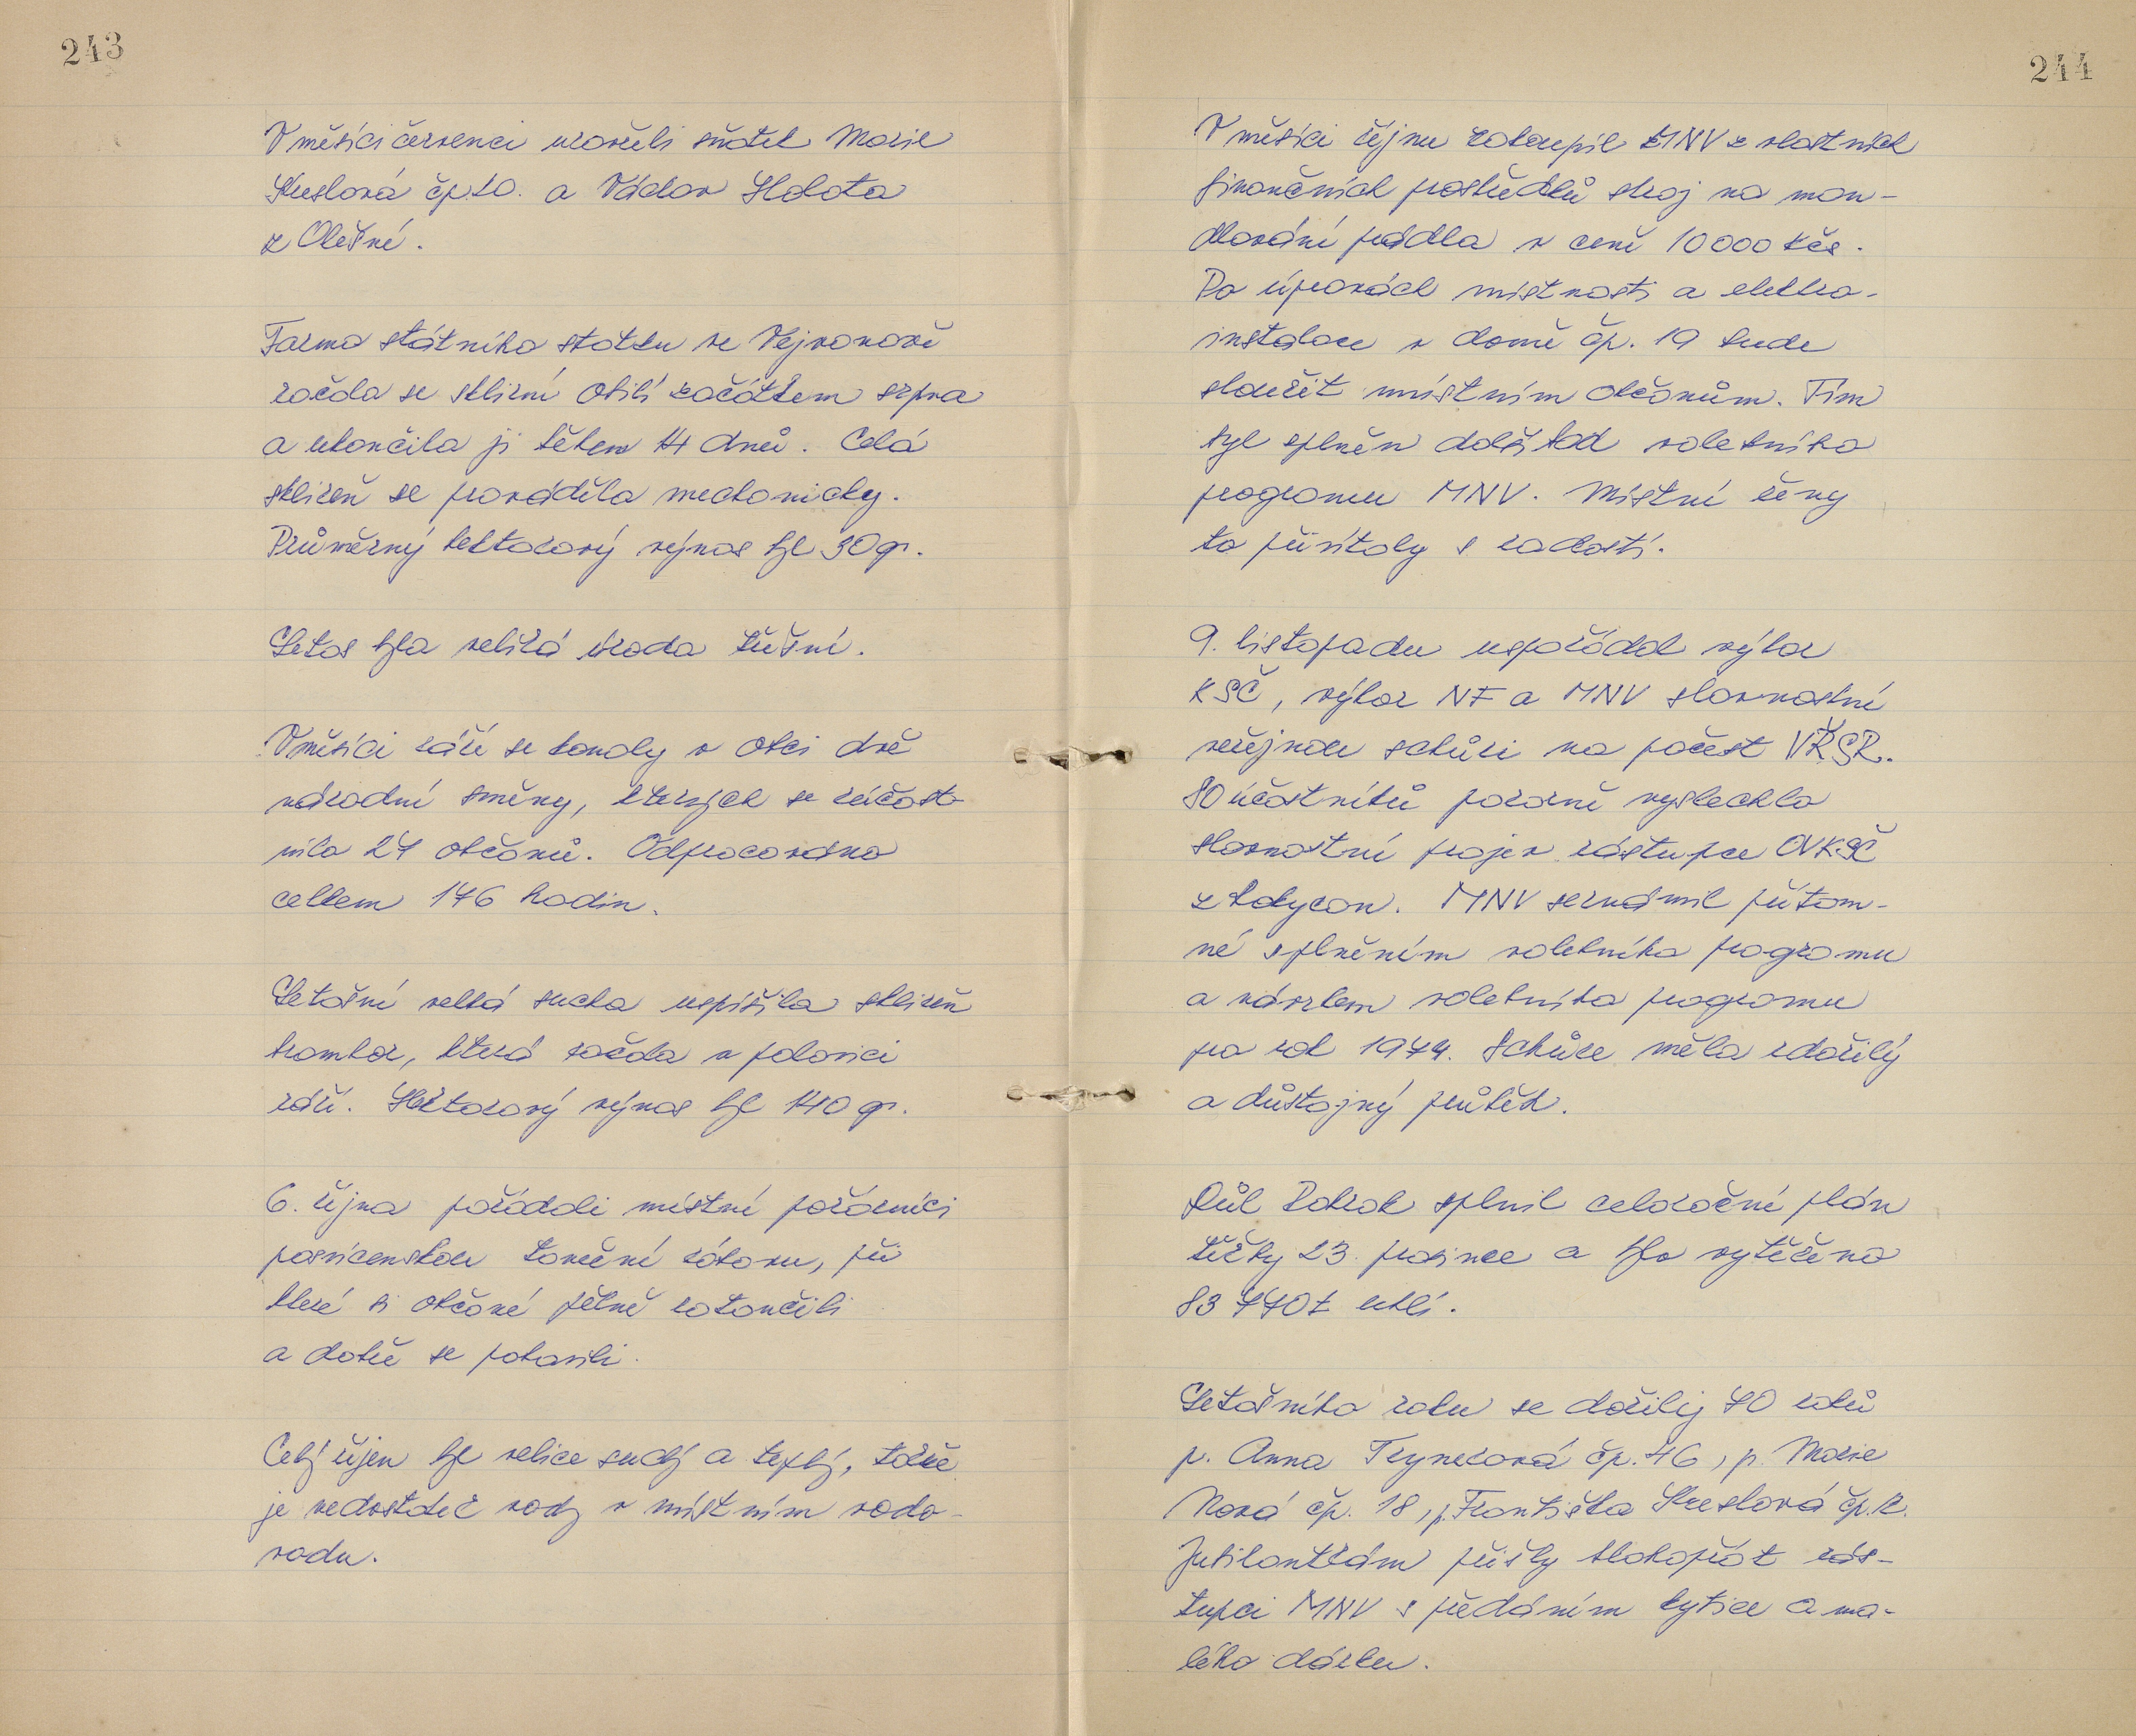 243
V měsíci červenci uzavřeli sňatek Marie
Kreslová čp. 20. a Václav Holota
z Olešné.
Farma státního statku ve Vejvanově
začala se sklizní obilí začátkem srpna
a ukončila ji během 14 dnů. Celá
sklizeň se prováděla mechanicky.
Průměrný hektarový výnos byl 30 q.
Letos byla veliká úroda třešní.
V měsíci září se konaly v obci dvě
národní směny, kterých se zúčast-
nilo 27 občanů. Odpracováno
celkem 176 hodin.
Letošní velká sucha uspíšila sklizeň
brambor, která začala v polovici
září. Hektarový výnos byl 140 q.
6. října pořádali místní požárníci
posvícenskou taneční zábavu, při
které si občané pěkně zatančili
a dobře se pobavili.
Celý říjen byl velice suchý a teplý, takže
je nedostatek vody v místním vodo-
vodu.
244
V měsíci říjnu zakoupil MNV z vlastních
finančních prostředků stroj na man-
dlování prádla v ceně 10 000 Kčs.
Po úpravách místnosti a elektro-
instalace v domě čp. 19 bude
sloužit místním občanům. Tím
byl splněn další bod volebního
programu MNV. Místní ženy
to přivítaly s radostí.
9. listopadu uspořádal výbor
KSČ, výbor NF a MNV slavnostní
veřejnou schůzi na počest VŘSR.
80 účastníků pozorně vyslechlo
slavnostní projev zástupce OVKSČ
z Rokycan. MNV seznámil přítom-
né s plněním volebního programu
a návrhem volebního programu
pro rok 1974. Schůze měla zdařilý
a důstojný průběh.
Důl Pokrok splnil celoroční plán
těžby 23. prosince a bylo vytěženo
83 770 t uhlí.
Letošního roku se dožily 70 roků
p. Anna Trynerová čp. 46, p. Marie
Nová čp. 18, p. Františka Kreslová čp. 2.
Jubilantkám přišly blahopřát zás-
tupci MNV s předáním kytice a ma-
lého dárku.